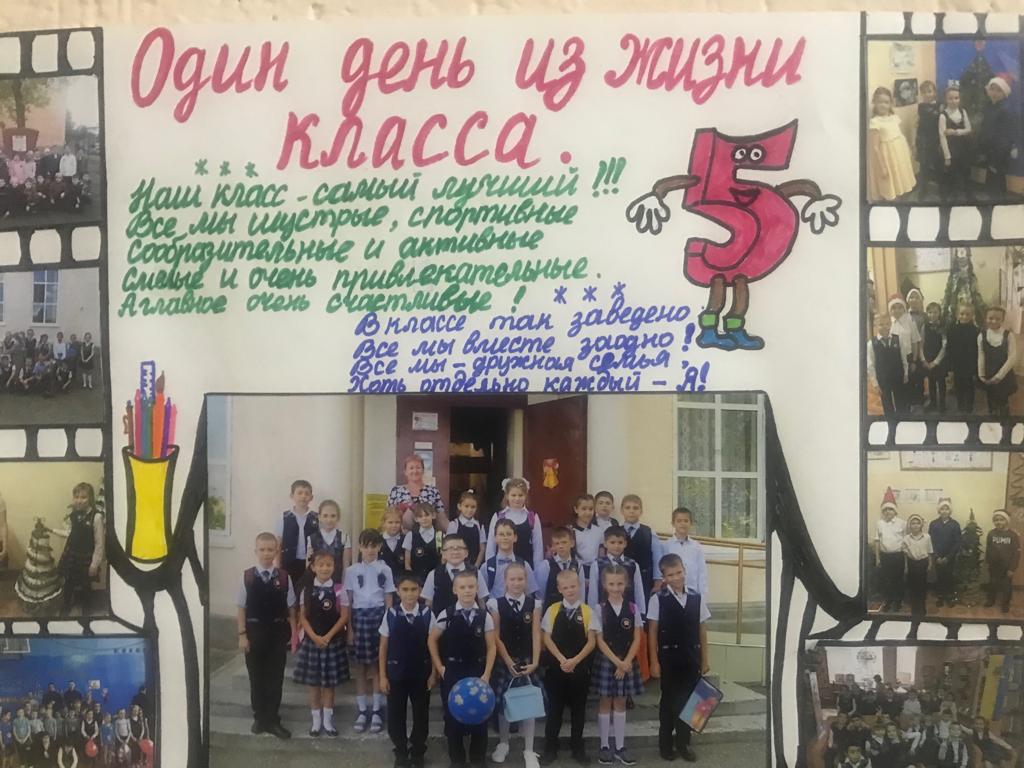 Один день из жизни
класса.
* * *
Наш класс - самый лучший !!!
Все мы шустрые, спортивные
Сообразительные и активные
Смелые и очень привлекательные.
А главное очень счастливые !
* * *
В классе так заведено
Все мы вместе заодно !
Все мы - дружная семья,
Хоть отдельно каждый - Я!
5
PUMA